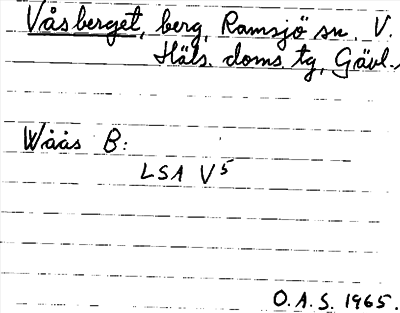 Våsberget, berg, Ramsjö sn. V.
Häls. doms. tg, Gävl.
Wåås B:
LSA V5
O.A.S. 1965.